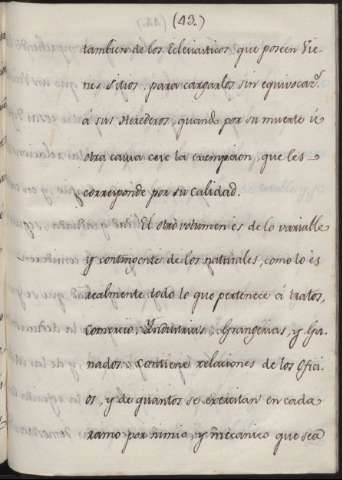 (43.)
tambien de los Eclesiasticos que poseen Vie-
nes sitios, para cargarlos sin equivocac.ⁿ
á sus Herederos, quando por su muerte ú
otra causa cese la exempcion, que les
corresponde por su calidad.
El otro volumen es de lo variable
y contingente de los naturales, como lo és
realmente todo lo que pertenece á tratos,
Comercio, Yndustrias, Grangerias, y Ga-
nados. Contiene relaciones de los Ofici-
os, y de quantos se exercitan en cada
ramo por nimio, y mecanico que sea